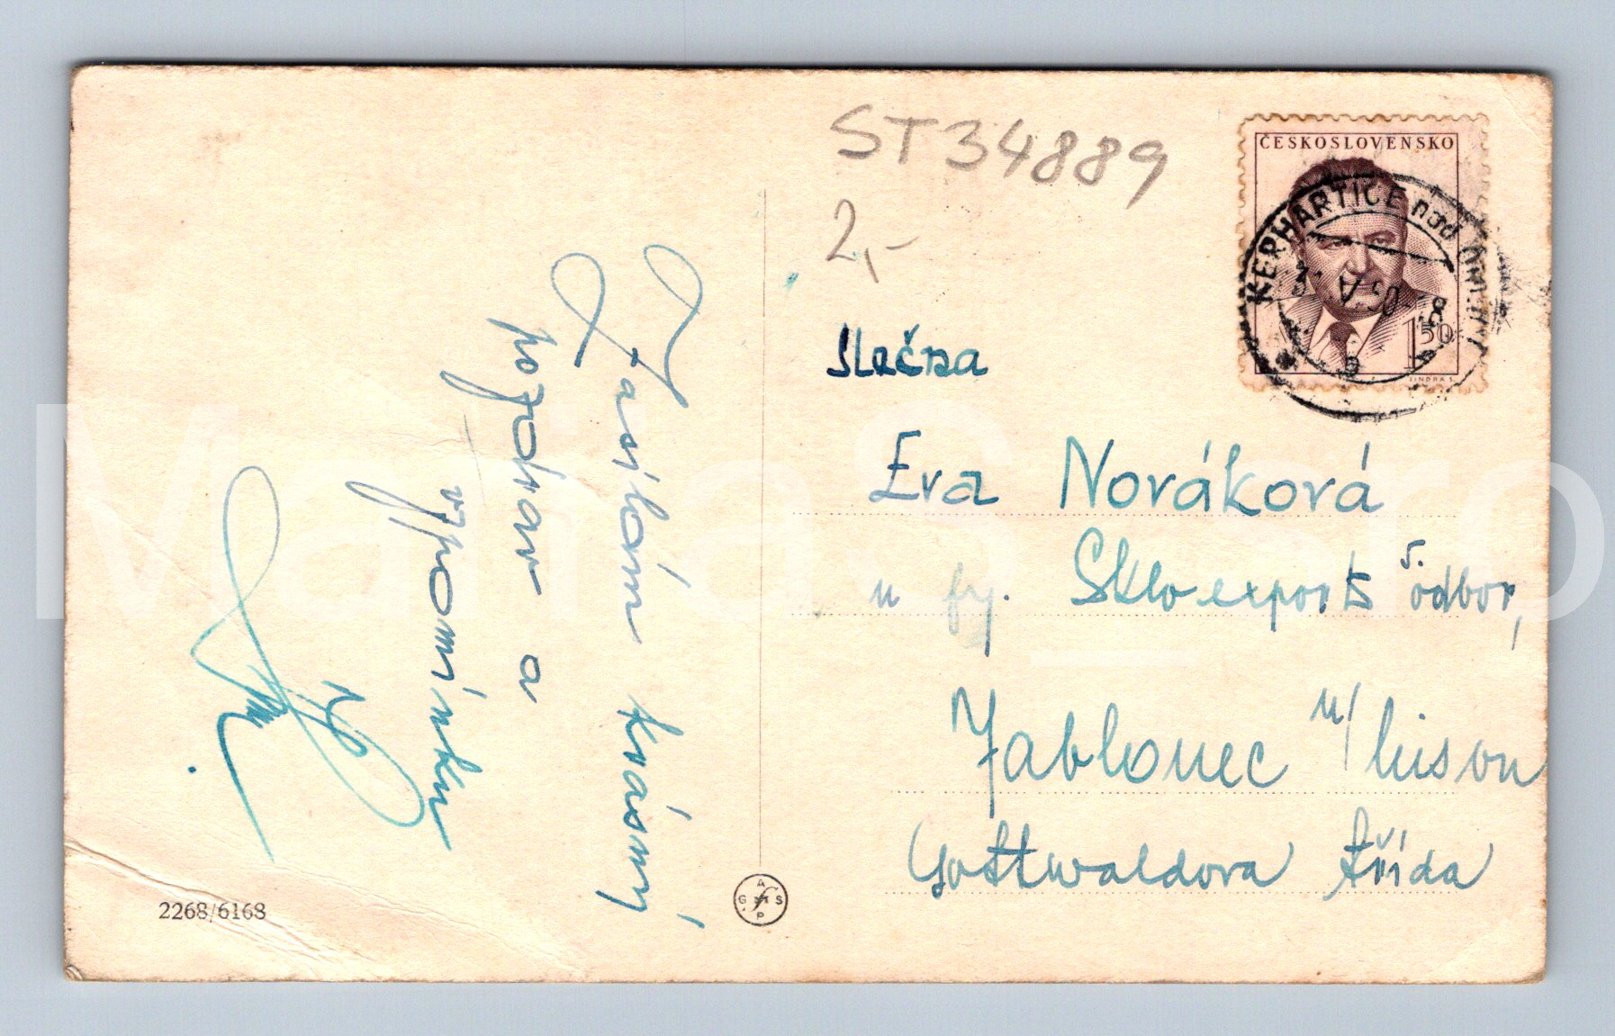 Zasílám krásný
pozdrav a
vzpomínku
ST34889
2,-
ČESKOSLOVENSKO
KERPHARTICE nad
3. V. 50 - 8
b
1 50
JINDRA S.
Slečna
Eva Nováková
u fy. Skloexport 5. odbor,
Jablonec n/Nisou
Gottwaldova třída
2268/6168